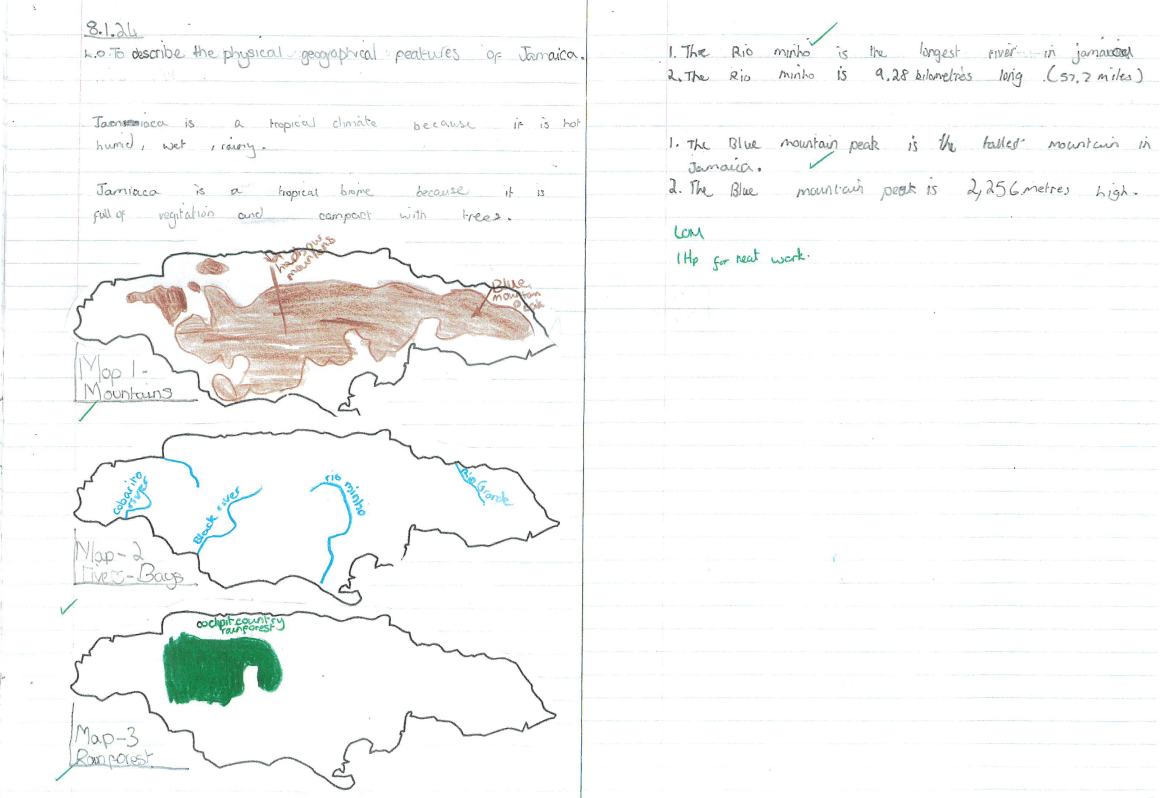 8.1.24
L.O. To describe the physical geographical features of Jamaica.
is a tropical climate because it is hot
humid, wet , rainy.
Jamiaca is a tropical biome because it is
full of vegitation and compact with trees.
mountains
Blue
mountain
peak
Map 1-
Mountains
cobarito
river
Black river
rio minho
Rio Grande
Map-2
- Bays
cockpit country
rainforest
Map-3
Rainforest
1. The Rio minho is the longest river in
2. The Rio minho is 9.28 kilometres long (57.7 miles)
1. The Blue mountain peak is the tallest mountain in
Jamaica.
2. The Blue mountain peak is 2,256 metres high.
LOM
1Hp for neat work.